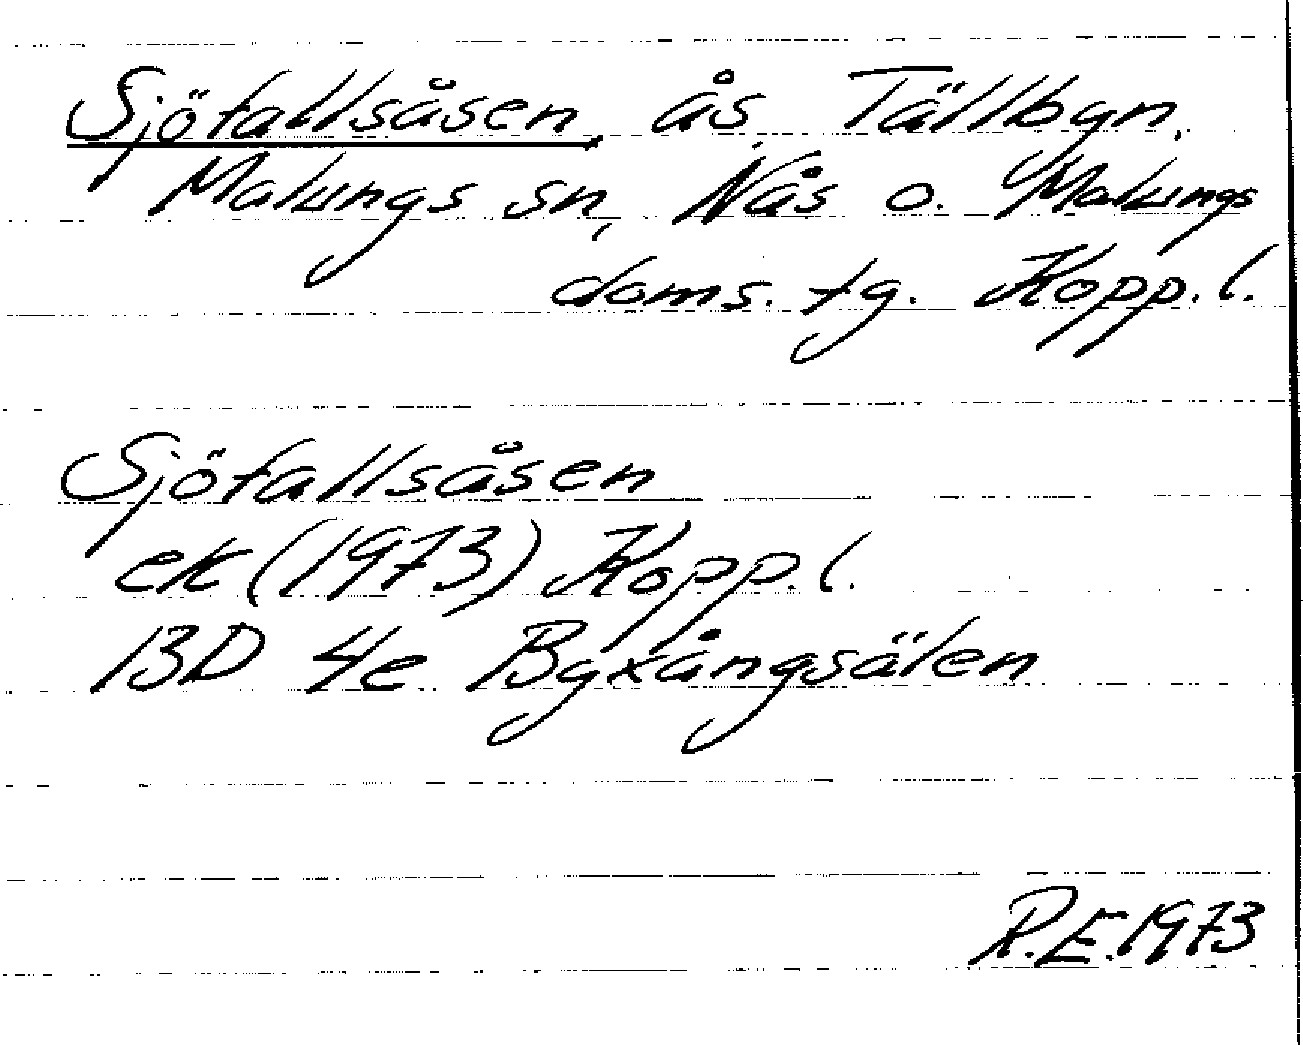 Sjöfallsåsen, ås, Tällbyn,
Malungs sn, Nås o. Malungs
doms. tg. Kopp. l.
Sjöfallsåsen
ek (1973) Kopp. l.
13D 4e Bgxångsälen
R.E. 1973